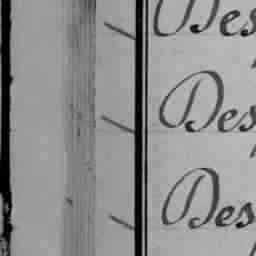 Des
Des
Des